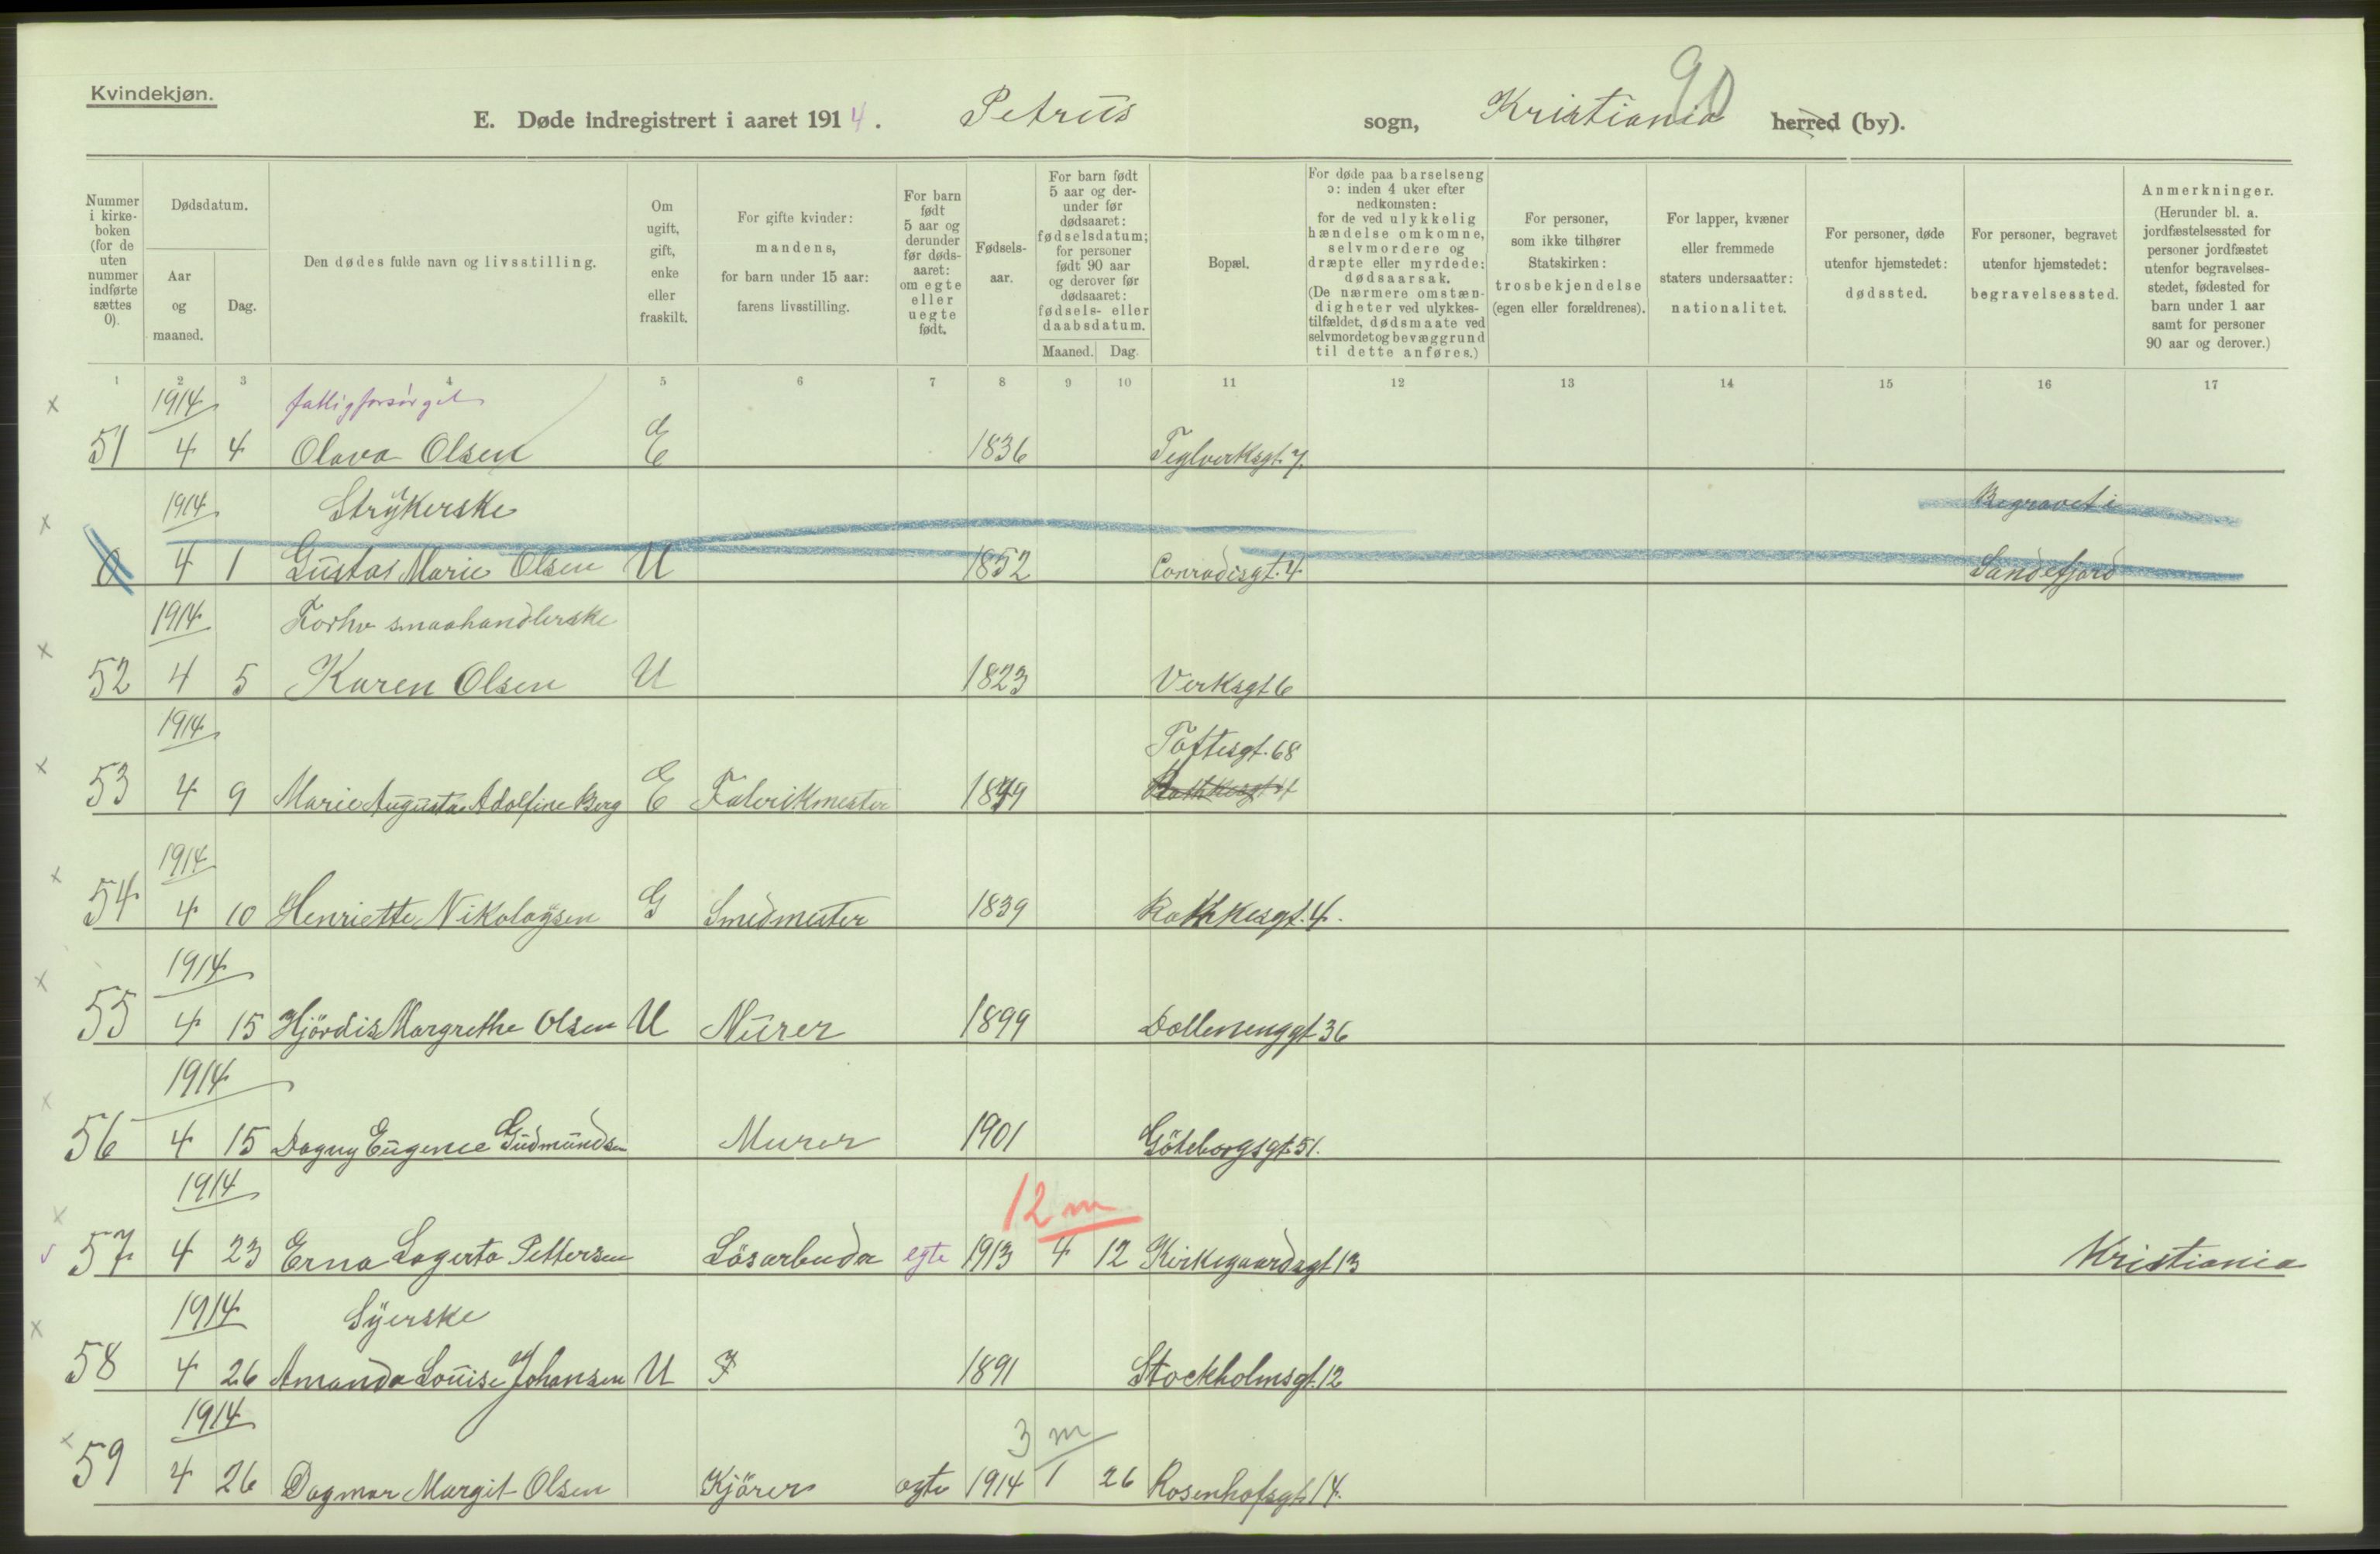 90
Kvindekjøn.
E. Døde indregistrert i aaret 1914. Petrus sogn, Kristiania herred (by).
Nummer i kirke-boken (for de uten nummer indførte sættes 0).
Dødsdatum.
Aar og maaned.
Dag.
Den dødes fulde navn og livsstilling.
Om ugift, gift, enke eller fraskilt.
For gifte kvinder: mandens, for barn under 15 aar: farens livsstilling.
For barn født 5 aar og derunder før døds-aaret: om egte eller uegte født.
Fødsels-aar.
For barn født 5 aar og der-under før dødsaaret: fødselsdatum; for personer født 90 aar og derover før dødsaaret: fødsels- eller daabsdatum.
Maaned. Dag.
Bopæl.
For døde paa barselseng ɔ: inden 4 uker efter nedkomsten: for de ved ulykkelig hændelse omkomne, selvmordere og dræpte eller myrdede: dødsaarsak. (De nærmere omstæn-digheter ved ulykkes-tilfældet, dødsmaate ved selvmordet og bevæggrund til dette anføres.)
For personer, som ikke tilhører Statskirken: trosbekjendelse (egen eller forældrenes).
For lapper, kvæner eller fremmede staters undersaatter: nationalitet.
For personer, døde utenfor hjemstedet: dødssted.
For personer, begravet utenfor hjemstedet: begravelsessted.
Anmerkninger. (Herunder bl. a. jordfæstelsessted for personer jordfæstet utenfor begravelses-stedet, fødested for barn under 1 aar samt for personer 90 aar og derover.)
1 2 3 4 5 6 7 8 9 10 11 12 13 14 15 16 17
x 1914 fattigforsörget
51 4 4 Olava Olsen E 1836 Teglverksgt. 7.
x 1914 Strykerske Begravet i
0 4 1 Gustas Marie Olsen U 1852 Conradisgt. 4 Sandefjord
1914 Forhv smaahandlerske
x 52 4 5 Karen Olsen U 1823 Verksgt 6
1914 Toftesgt. 68
x 53 4 9 Marie Augusta Adolfine Berg E Fabrikmester 1849
1914
x 54 4 10 Henriette Nikolaysen G Smedmester 1839 Rathkesgt. 4.
1914
x 55 4 15 Hjördis Margrethe Olsen U Murer 1899 Dællenenggt 36
1914
x 56 4 15 Dagny Eugenie Gudmundsen Murer 1901 Göteborgsgt 51.
1914 12 m
x 57 4 23 Erna Lagerta Pettersen Lösarbeider egte 1913 4 12 Kirkegaardsgt 13 Kristiania
1914 Syerske
x 58 4 26 Amanda Louise Johansen U F 1891 Stockholmsgt. 12
1914 3 m
x 59 4 26 Dagmar Margit Olsen Kjörer egte 1914 1 26 Rosenhofsgt 14.